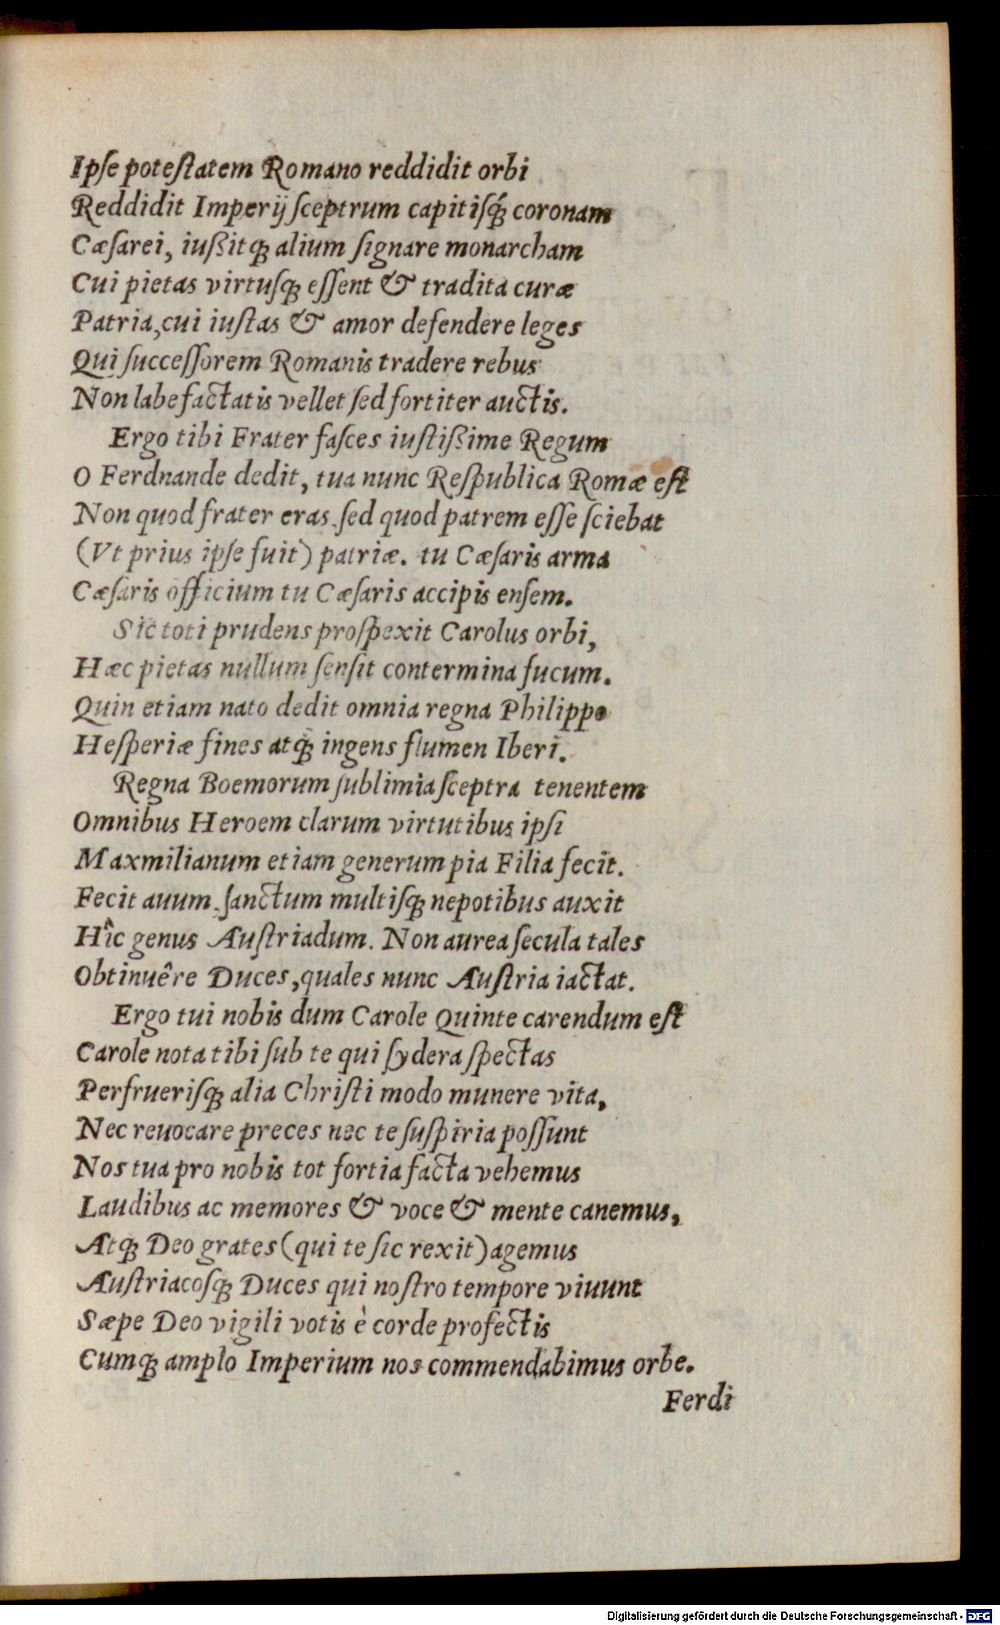 Ipſe poteſtatem Romano reddidit orbi
Reddidit Imperij ſceptrum capitisq́; coronam
Cæſarei, iußitq; alium ſignare monarcham
Cui pietas virtuſq; eſſent & tradita curæ
Patria, cui iuſtas & amor defendere leges
Qui ſucceſſorem Romanis tradere rebus
Non labefactatis vellet ſed fortiter auctis.
Ergo tibi Frater faſces iuſtißime Regum
O Ferdnande dedit, tua nunc Reſpublica Romæ eſt
Non quod frater eras ſed quod patrem eſſe ſciebat
(Vt prius ipſe fuit) patriæ. tu Cæſaris arma
Cæſaris officium tu Cæſaris accipis enſem.
Sic toti prudens proſpexit Carolus orbi,
Hæc pietas nullum ſenſit contermina fucum.
Quin etiam nato dedit omnia regna Philippo
Heſperiæ fines atq; ingens flumen Iberi.
Regna Boemorum ſublimia ſceptra tenentem
Omnibus Heroem clarum virtutibus ipſi
Maxmilianum etiam generum pia Filia fecit.
Fecit auum ſanctum multiſq; nepotibus auxit
Hîc genus Auſtriadum. Non aurea ſecula tales
Obtinuêre Duces, quales nunc Auſtria iactat.
Ergo tui nobis dum Carole Quinte carendum eſt
Carole nota tibi ſub te qui ſydera ſpectas
Perfrueriſq; alia Chriſti modo munere vita,
Nec reuocare preces nec te ſuſpiria poſſunt
Nos tua pro nobis tot fortia facta vehemus
Laudibus ac memores & voce & mente canemus,
Atq; Deo grates (qui te ſic rexit) agemus
Auſtriacoſq; Duces qui noſtro tempore viuunt
Sæpe Deo vigili votis è corde profectis
Cumq; amplo Imperium nos commendabimus orbe.
Ferdi
Digitalisierung gefördert durch die Deutsche Forschungsgemeinschaft - DFG